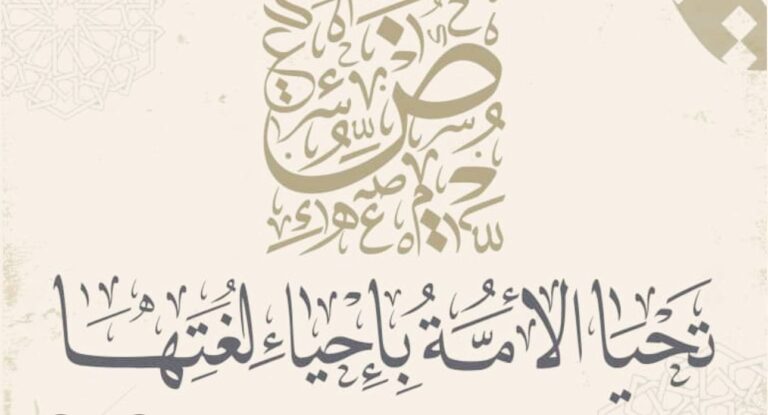 تَحْيَا الأمَّةُ بِإِحْيَاءِ لُغَتِهَا